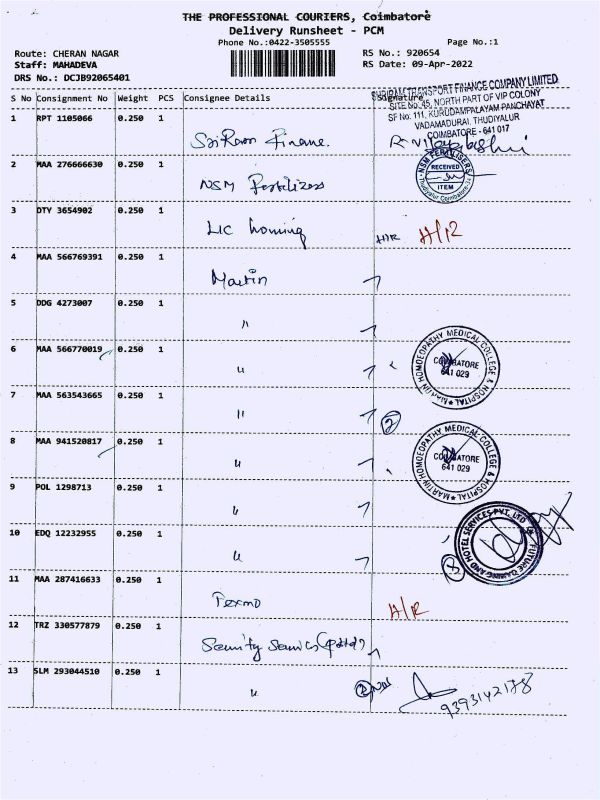 THE PROFESSIONAL COURIERS, Coimbatore
Delivery Runsheet - PCM
Phone No.:0422-3505555 Page No.:1
Route: CHERAN NAGAR RS No.: 920654
Staff: MAHADEVA RS Date: 09-Apr-2022
DRS No.: DCJB92065401
S No Consignment No Weight PCS Consignee Details Signature
SHRIRAM TRANSPORT FINANCE COMPANY LIMITED
SITE No:45, NORTH PART OF VIP COLONY
SF No: 111, KURUDAMPALAYAM PANCHAYAT
VADAMADURAI, THUDIYALUR
COIMBATORE - 641 017
1 RPT 1105066 0.250 1 Sri Ram Finance.
2 MAA 276666630 0.250 1 NSM Fertilizers
NSM FERTILISERS
RECEIVED
ITEM
Thudiyalur Coimbatore
3 DTY 3654902 0.250 1 LIC housing H/R H/R
4 MAA 566769391 0.250 1 Martin
5 DDG 4273007 0.250 1 "
6 MAA 566770019 0.250 1 "
MARTIN HOMOEOPATHY MEDICAL COLLEGE & HOSPITAL
COIMBATORE
641 029
7 MAA 563543665 0.250 1 " 2
8 MAA 941520817 0.250 1 "
MARTIN HOMOEOPATHY MEDICAL COLLEGE & HOSPITAL
COIMBATORE
641 029
9 POL 1298713 0.250 1 "
10 EDQ 12232955 0.250 1 " 8
FUTURE GAMING AND HOTEL SERVICES PVT. LTD
11 MAA 287416633 0.250 1 Texmo H/R
12 TRZ 330577879 0.250 1
13 SLM 293044510 0.250 1 " 2
9393142178